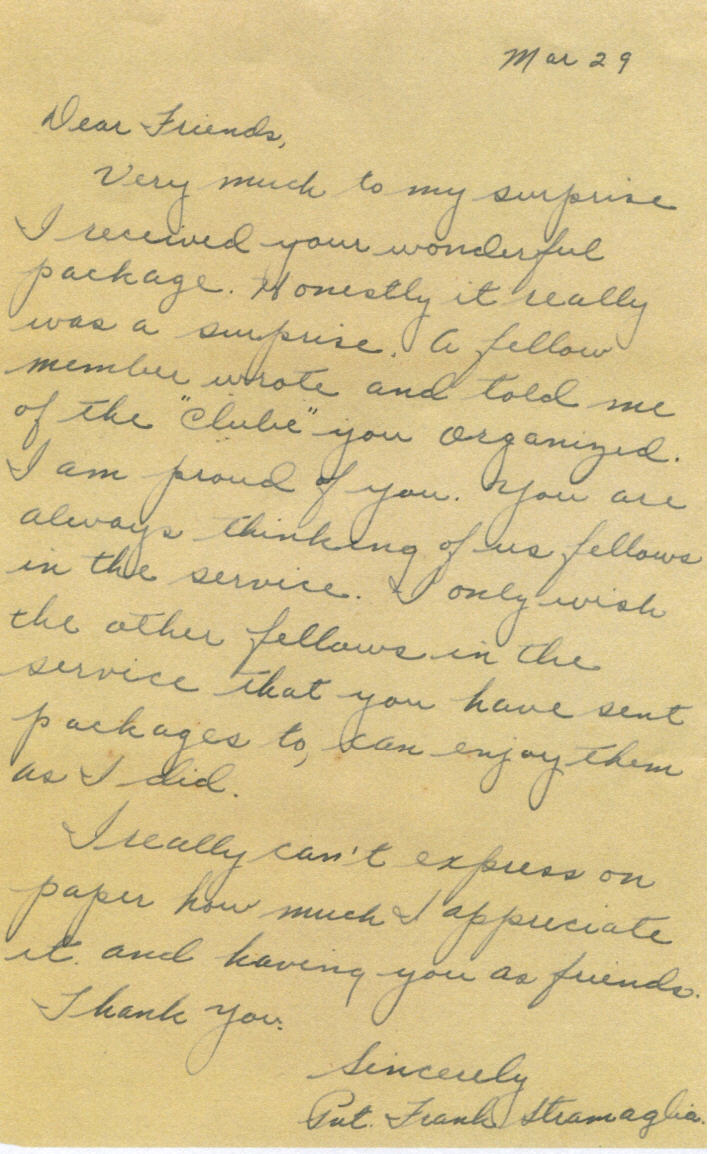 Mar 29
Dear Friends,
Very much to my surprise
I received your wonderful
package. Honestly it really
was a surprise. A fellow
member wrote and told me
of the "Clube" you organized.
I am proud of you. You are
always thinking of us fellows
in the service. I only wish
the other fellows in the
service that you have sent
packages to, can enjoy them
as I did.
I really can't express on
paper how much I appreciate
it and having you as friends.
Thank you.
Sincerely
Pvt. Frank Stramaglia.